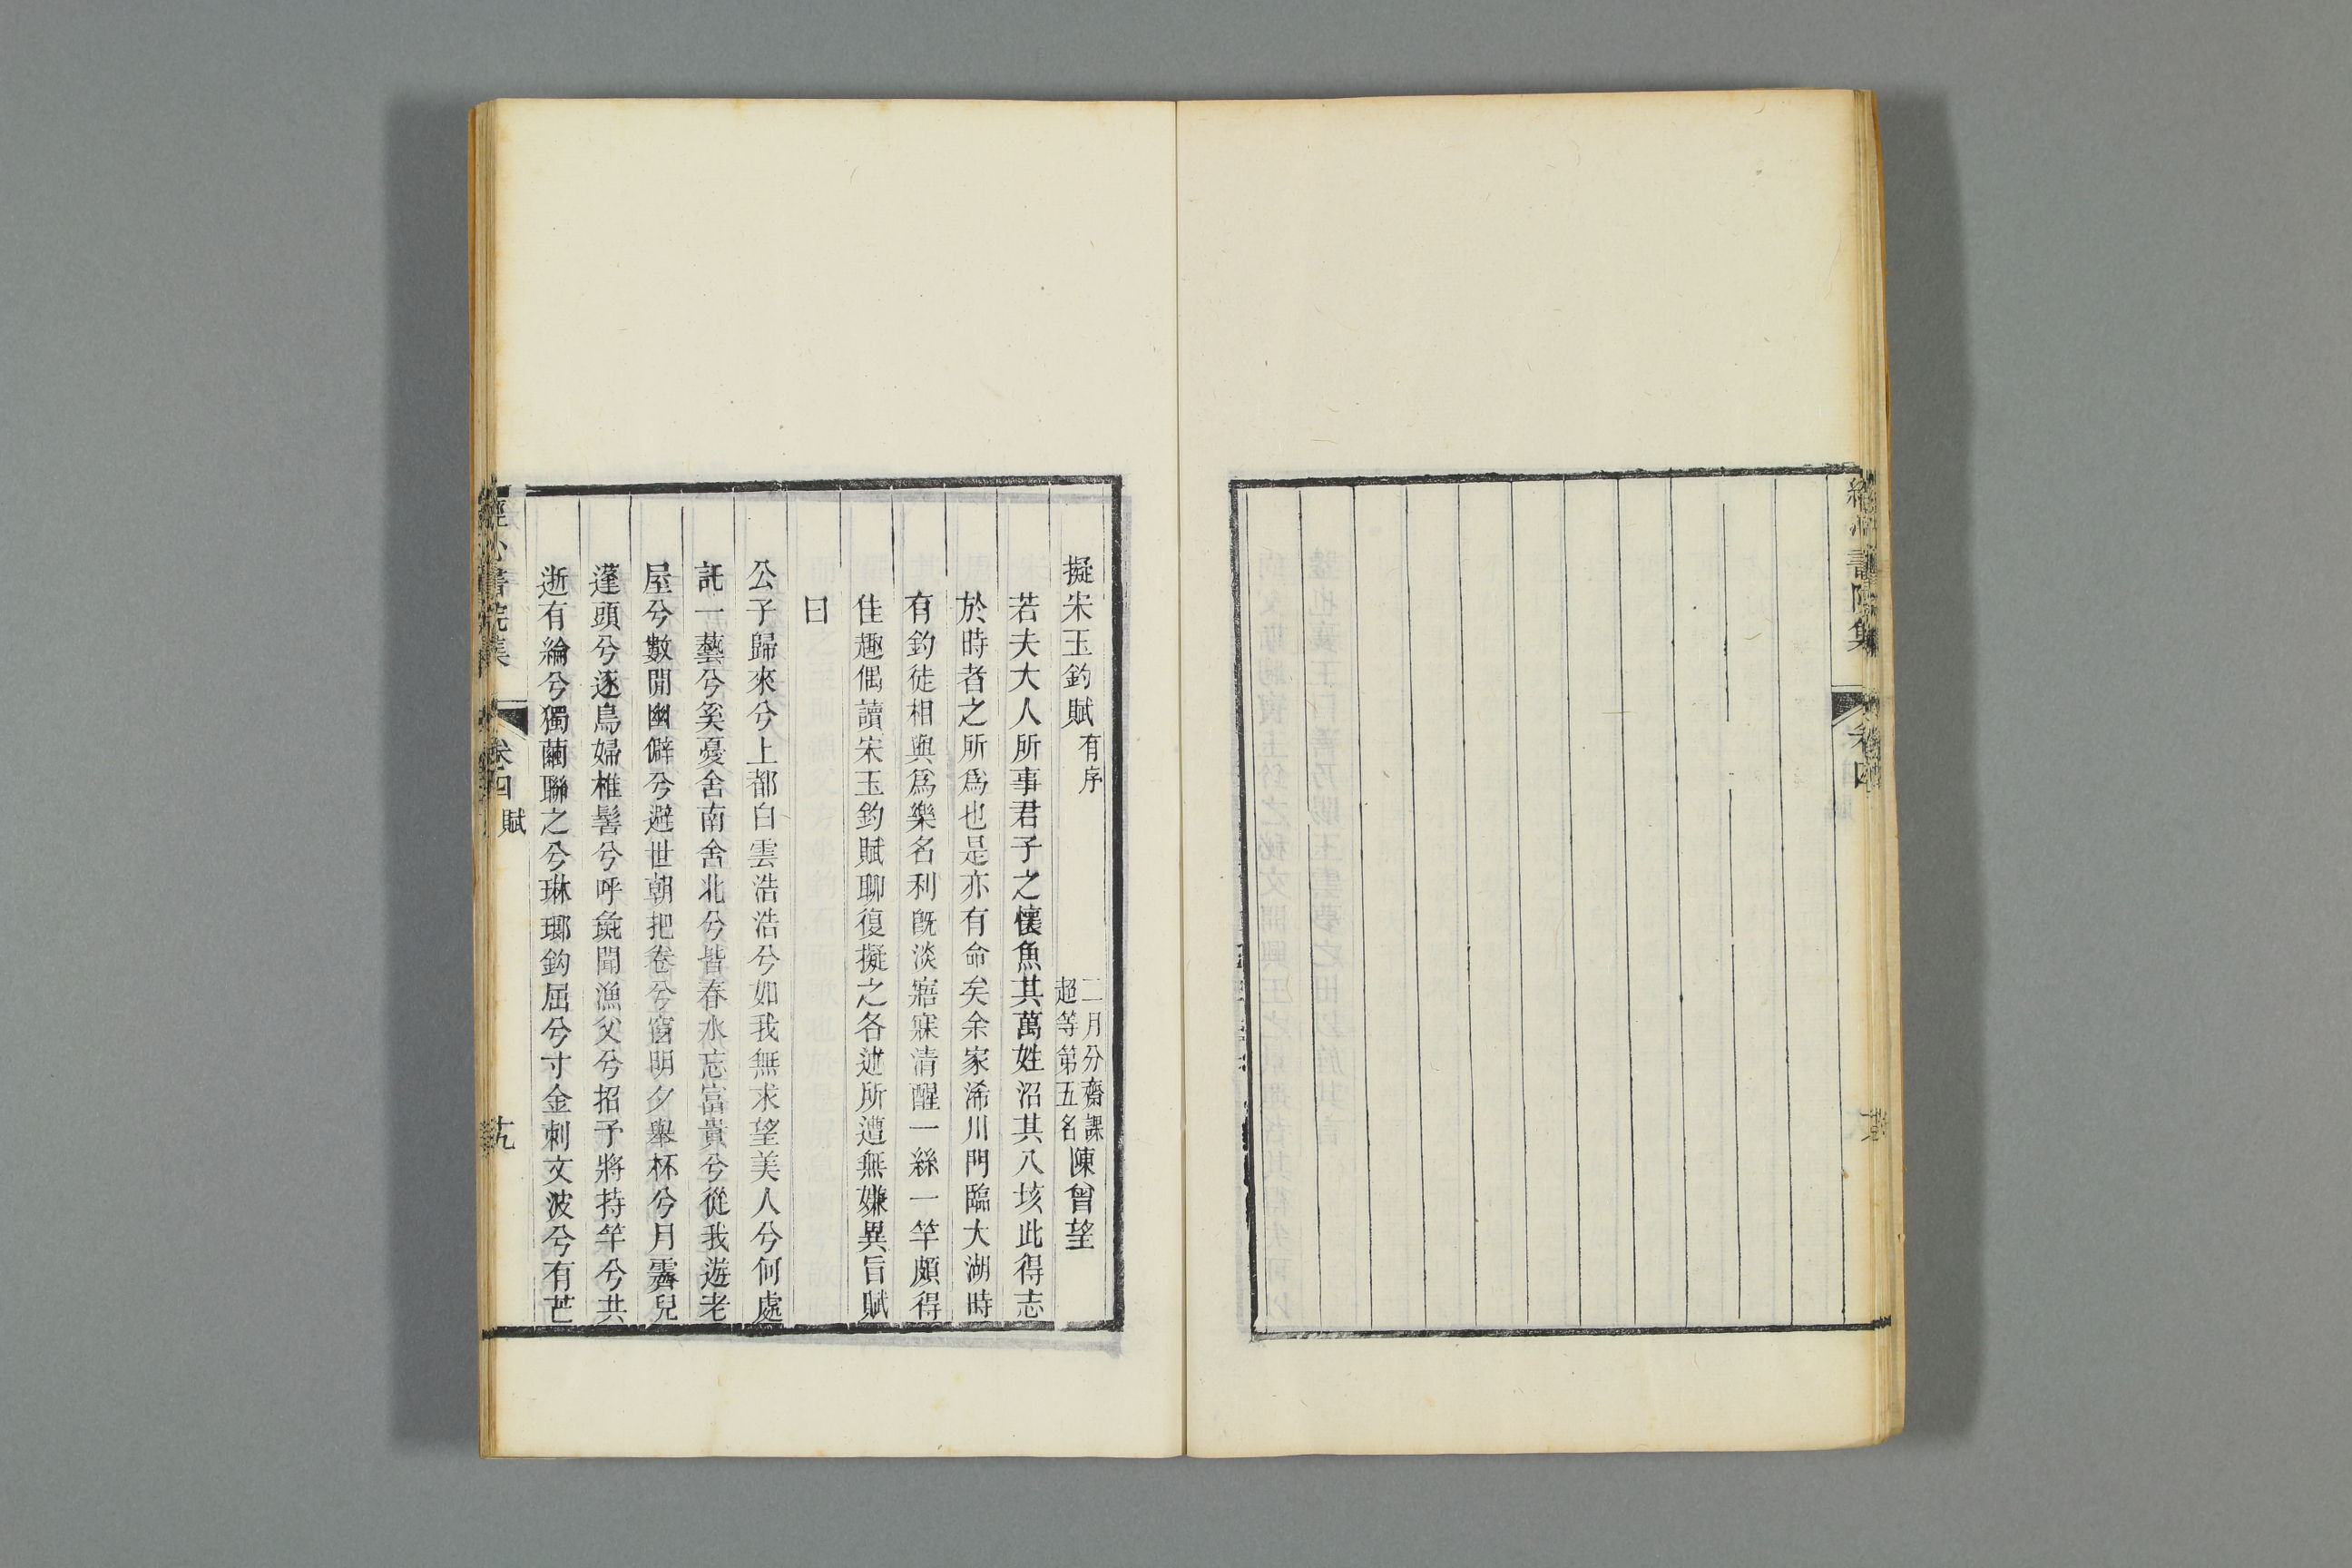 經心書院集
卷四
擬宋玉釣賦 有序 二月分齋課超等第五名 陳曾望
若夫大人所事君子之懷魚其萬姓沼其八垓此得志
於時者之所爲也是亦有命矣余家浠川門臨大湖時
有釣徒相與爲樂名利旣淡寤寐清醒一絲一竿頗得
佳趣偶讀宋玉釣賦聊復擬之各述所遭無嫌異旨賦
曰
公子歸來兮上都白雲浩浩兮如我無求望美人兮何處
託一藝兮奚憂舍南舍北兮皆春水忘富貴兮從我遊老
屋兮數閒幽僻兮避世朝把卷兮窗明夕舉杯兮月霽兒
蓬頭兮逐鳥婦椎髻兮呼毚聞漁父兮招予將持竿兮共
逝有綸兮獨繭聯之兮琳瑯鈎屈兮寸金刺文波兮有芒
經心書院集
卷四 賦